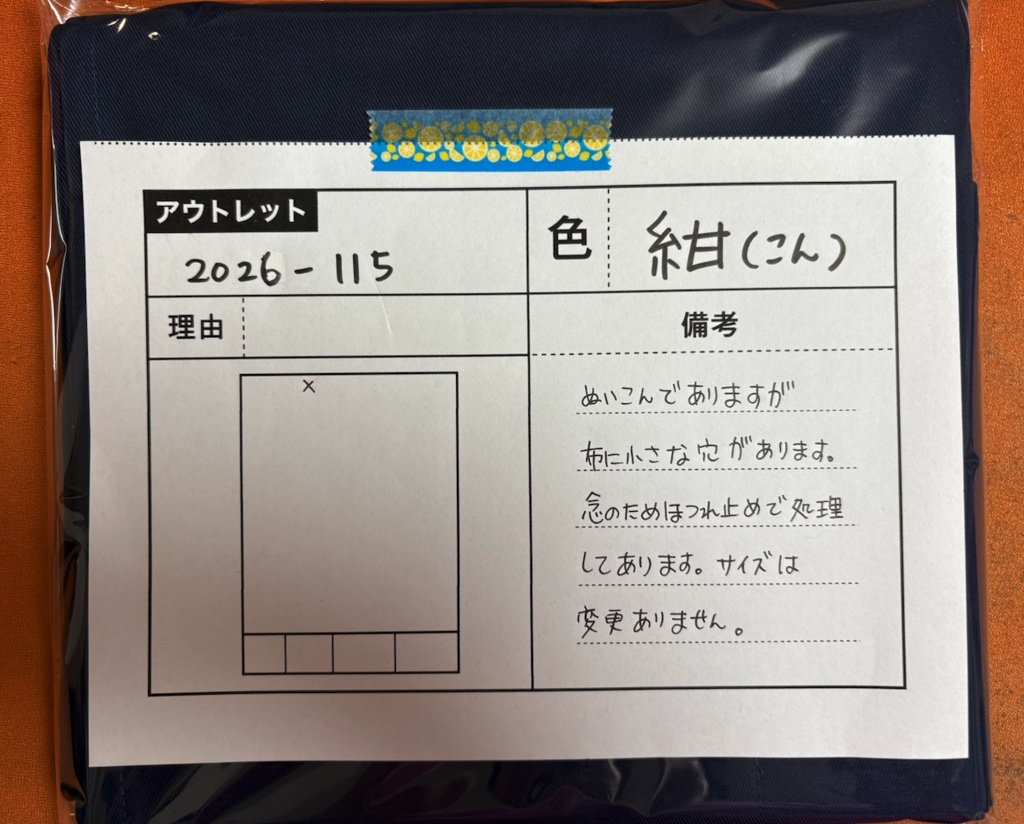 アウトレット
2026-115
色
紺(こん)
理由
備考
×
ぬいこんでありますが
布に小さな穴があります。
念のためほつれ止めで処理
してあります。サイズは
変更ありません。